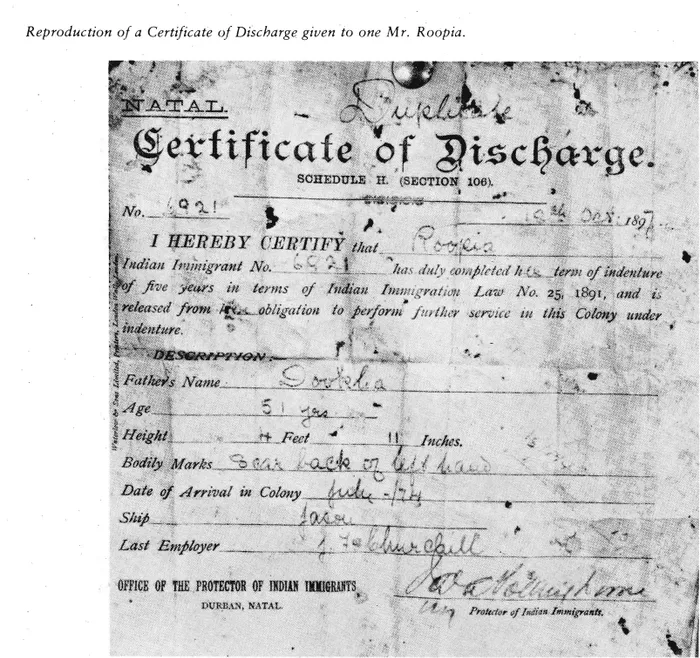 Reproduction of a Certificate of Discharge given to one Mr. Roopia.
Duplicate
NATAL.
Certificate of Discharge.
SCHEDULE H. (SECTION 106).
No. 6921
189
I HEREBY CERTIFY that Roopia
Indian Immigrant No. 6921 has duly completed his term of indenture
of five years in terms of Indian Immigration Law No. 25, 1891, and is
released from his obligation to perform further service in this Colony under
indenture.
DESCRIPTION.
Father's Name Dookha
Age 51 yrs
Height 4 Feet 11 Inches.
Bodily Marks Scar back of left hand
Date of Arrival in Colony July -/74
Ship Jason
Last Employer Churchill
OFFICE OF THE PROTECTOR OF INDIAN IMMIGRANTS,
DURBAN, NATAL.
Protector of Indian Immigrants.